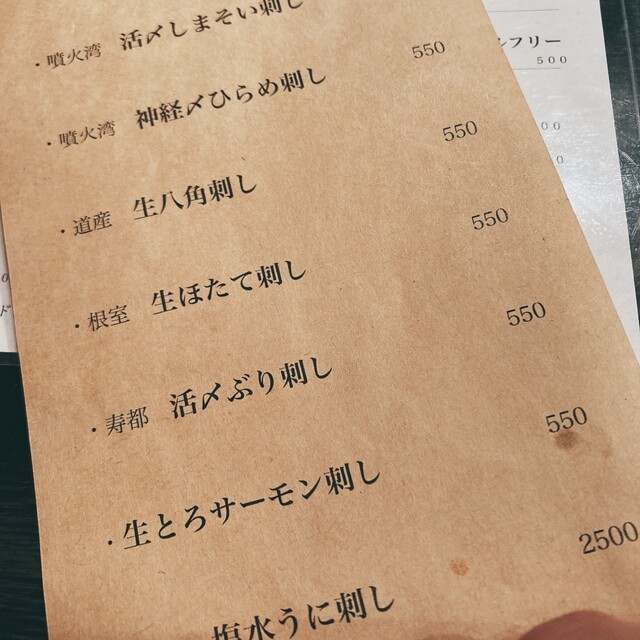 ・噴火湾 活〆しまそい刺し
・噴火湾 神経〆ひらめ刺し 550
・道産 生八角刺し 550
・根室 生ほたて刺し 550
・寿都 活〆ぶり刺し 550
・生とろサーモン刺し 550
塩水うに刺し 2500
フリー
500